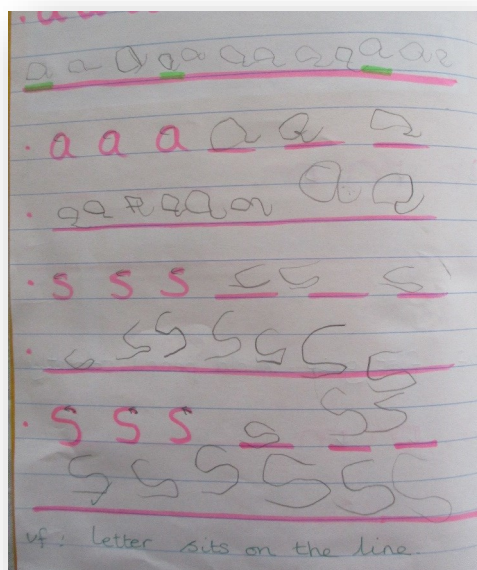 a a a a a a a a a a a a
· a a a a a a
· a a a a a a a a
· s s s s s s
· s s s s s s s
· s s s s s s
s s s s s s
vf: letter sits on the line.